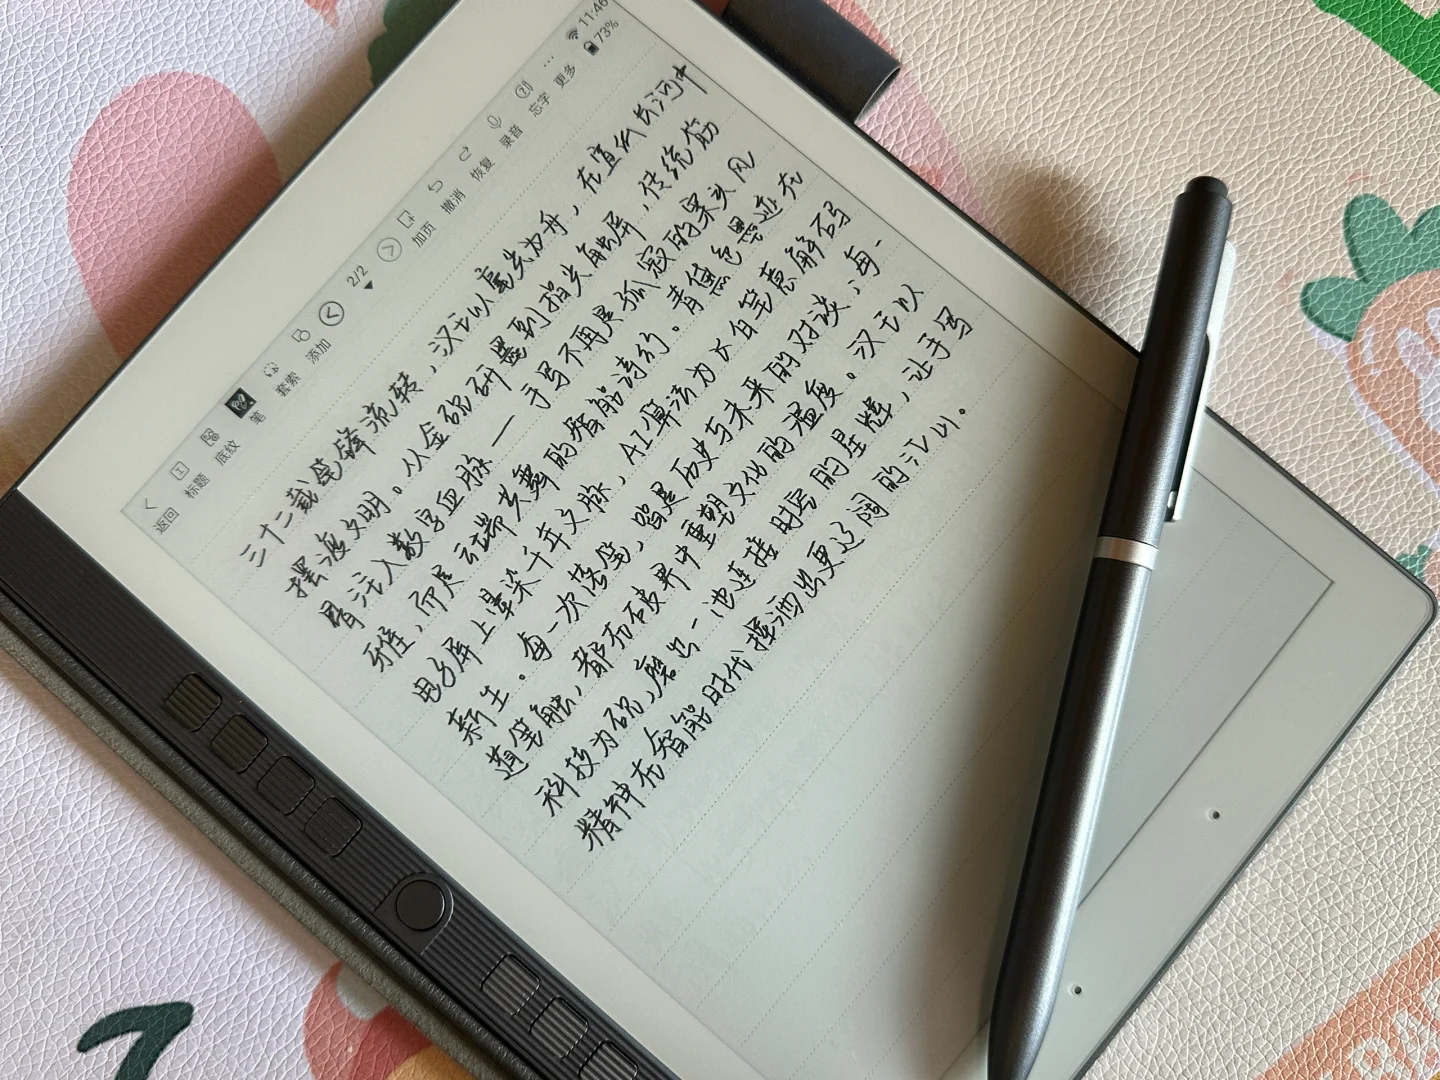 11:46
73%
返回 标题 底纹 笔 套索 添加 2/2 加页 撤消 恢复 录音 忘字 更多
三十二载笔锋流转，汉王以毫尖为舟，在宣纸长河中
摆渡文明。从金砚研墨到指尖触屏，传统筋
骨注入数字血脉——手写不再是孤寂的案头风
雅，而是云端共舞的智能诗行。青黛色墨迹在
电子屏上晕染千年文脉，AI算法为水自笔意解码
新生。每一次落笔，皆是历史与未来的对谈；每一
道笔触，都在破界中重塑文化的温度。汉王以
科技为砚，磨出一池连接时号的星辉，让手写
精神在智能时代挥洒出更辽阔的江山。